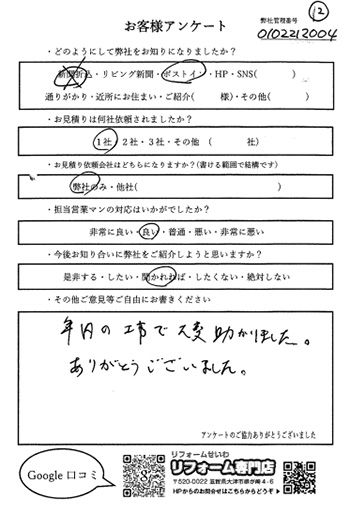 ⑫
弊社管理番号
0102212004
お客様アンケート
・どのようにして弊社をお知りになりましたか？
新聞折込・リビング新聞・ポストイン・HP・SNS(　　　)
通りがかり・近所にお住まい・ご紹介(　　　様)・その他(　　　)
・お見積りは何社依頼されましたか？
1社・2社・3社・その他 (　　　社)
・お見積り依頼会社はどちらになりますか？(書ける範囲で結構です)
弊社のみ・他社(　　　)
・担当営業マンの対応はいかがでしたか？
非常に良い・良い・普通・悪い・非常に悪い
・今後お知り合いに弊社をご紹介しようと思いますか？
是非する・したい・聞かれれば・したくない・絶対しない
・その他ご意見等ご自由にお書きください
年内の工事で大変助かりました。
ありがとうございました。
アンケートのご協力ありがとうございました
Google 口コミ
リフォームせいわ
リフォーム専門店
〒520-0022 滋賀県大津市柳が崎4-6
HPからのお問合せはこちらからどうぞ▶